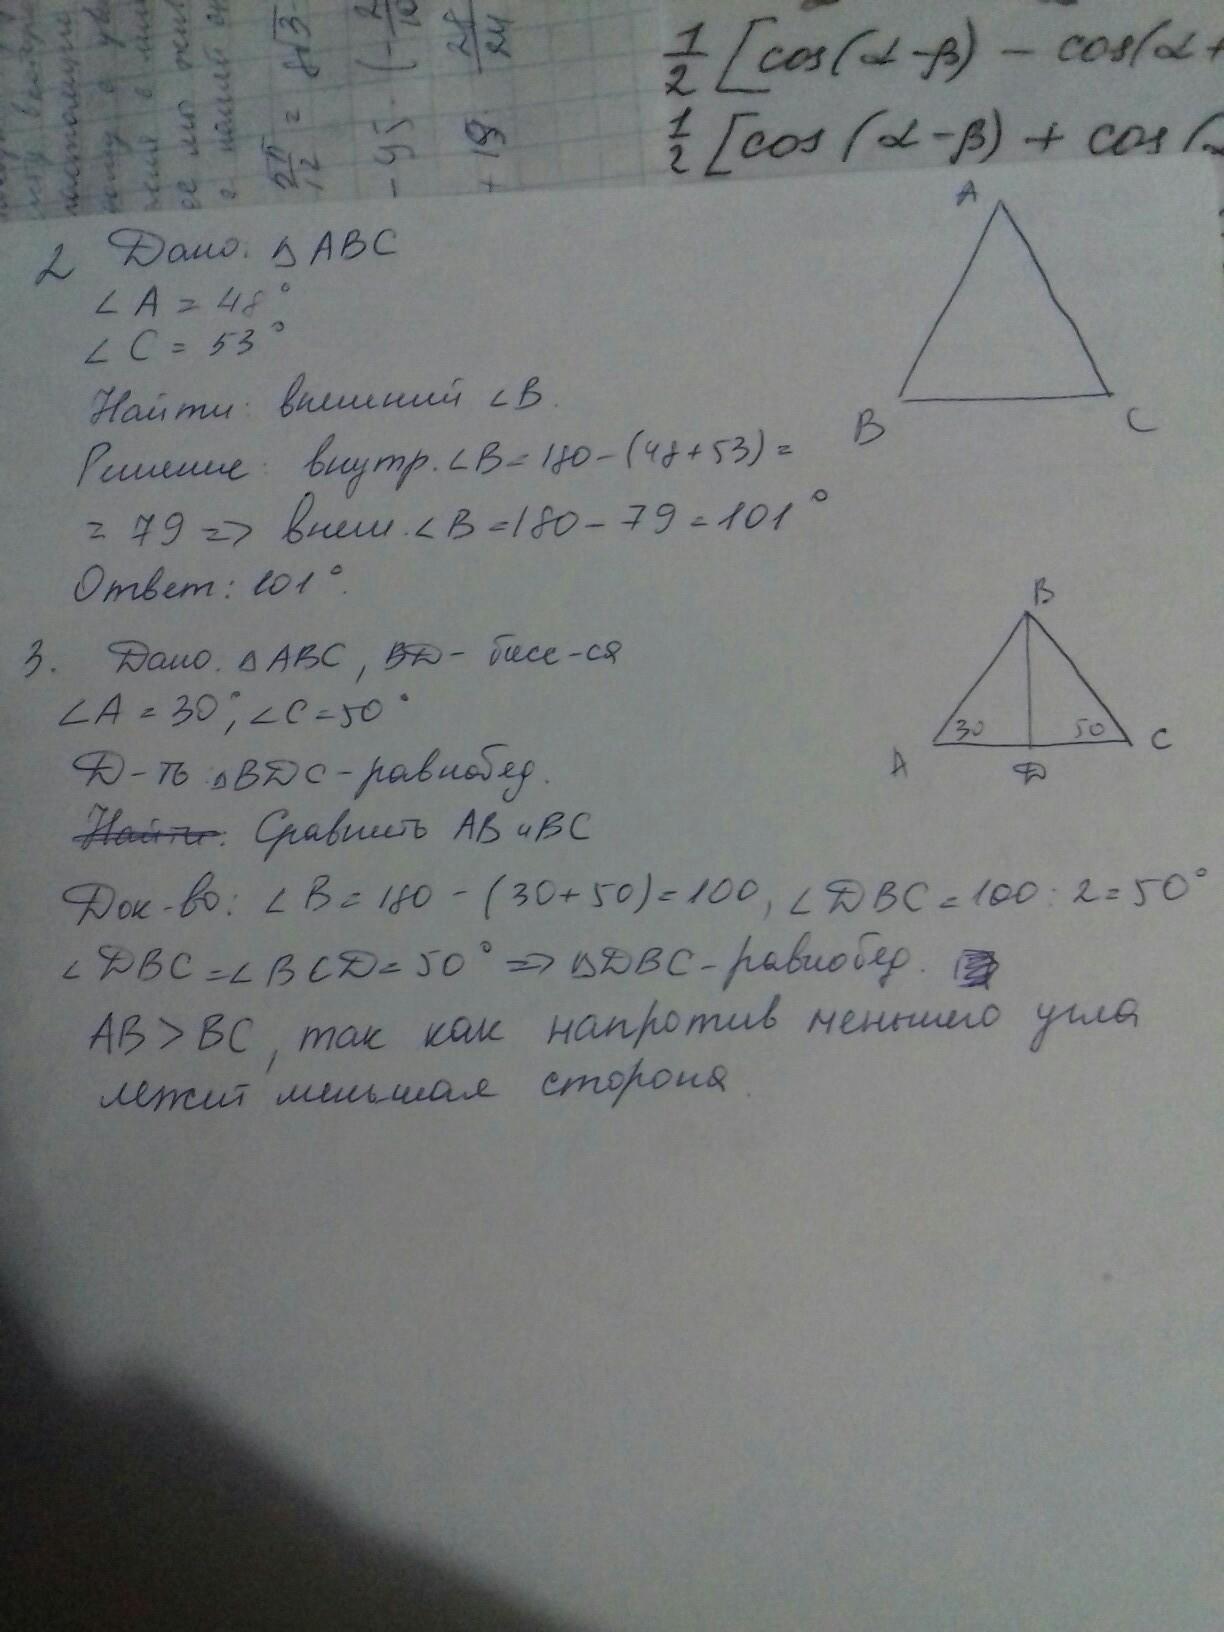 1/2 [cos(α-β) - cos(α+
1/2 [cos(α-β) + cos(
2π/12 = 8√3-
- 45 - (-2/10
+ 19 28/24
2 Дано: △ABC
∠A = 48°
∠C = 53°
Найти: внешний ∠B.
Решение: внутр. ∠B = 180 - (48+53) =
= 79 => внеш. ∠B = 180 - 79 = 101°
Ответ: 101°.
A
B
C
3. Дано: △ABC, BD - бисс-са
∠A = 30°, ∠C = 50°
Д-ть: △BDC - равнобед.
Найти: Сравнить AB и BC
Док-во: ∠B = 180 - (30+50) = 100, ∠DBC = 100 : 2 = 50°
∠DBC = ∠BCD = 50° => △DBC - равнобед.
AB > BC, так как напротив меньшего угла
лежит меньшая сторона.
B
30
50
A
D
C